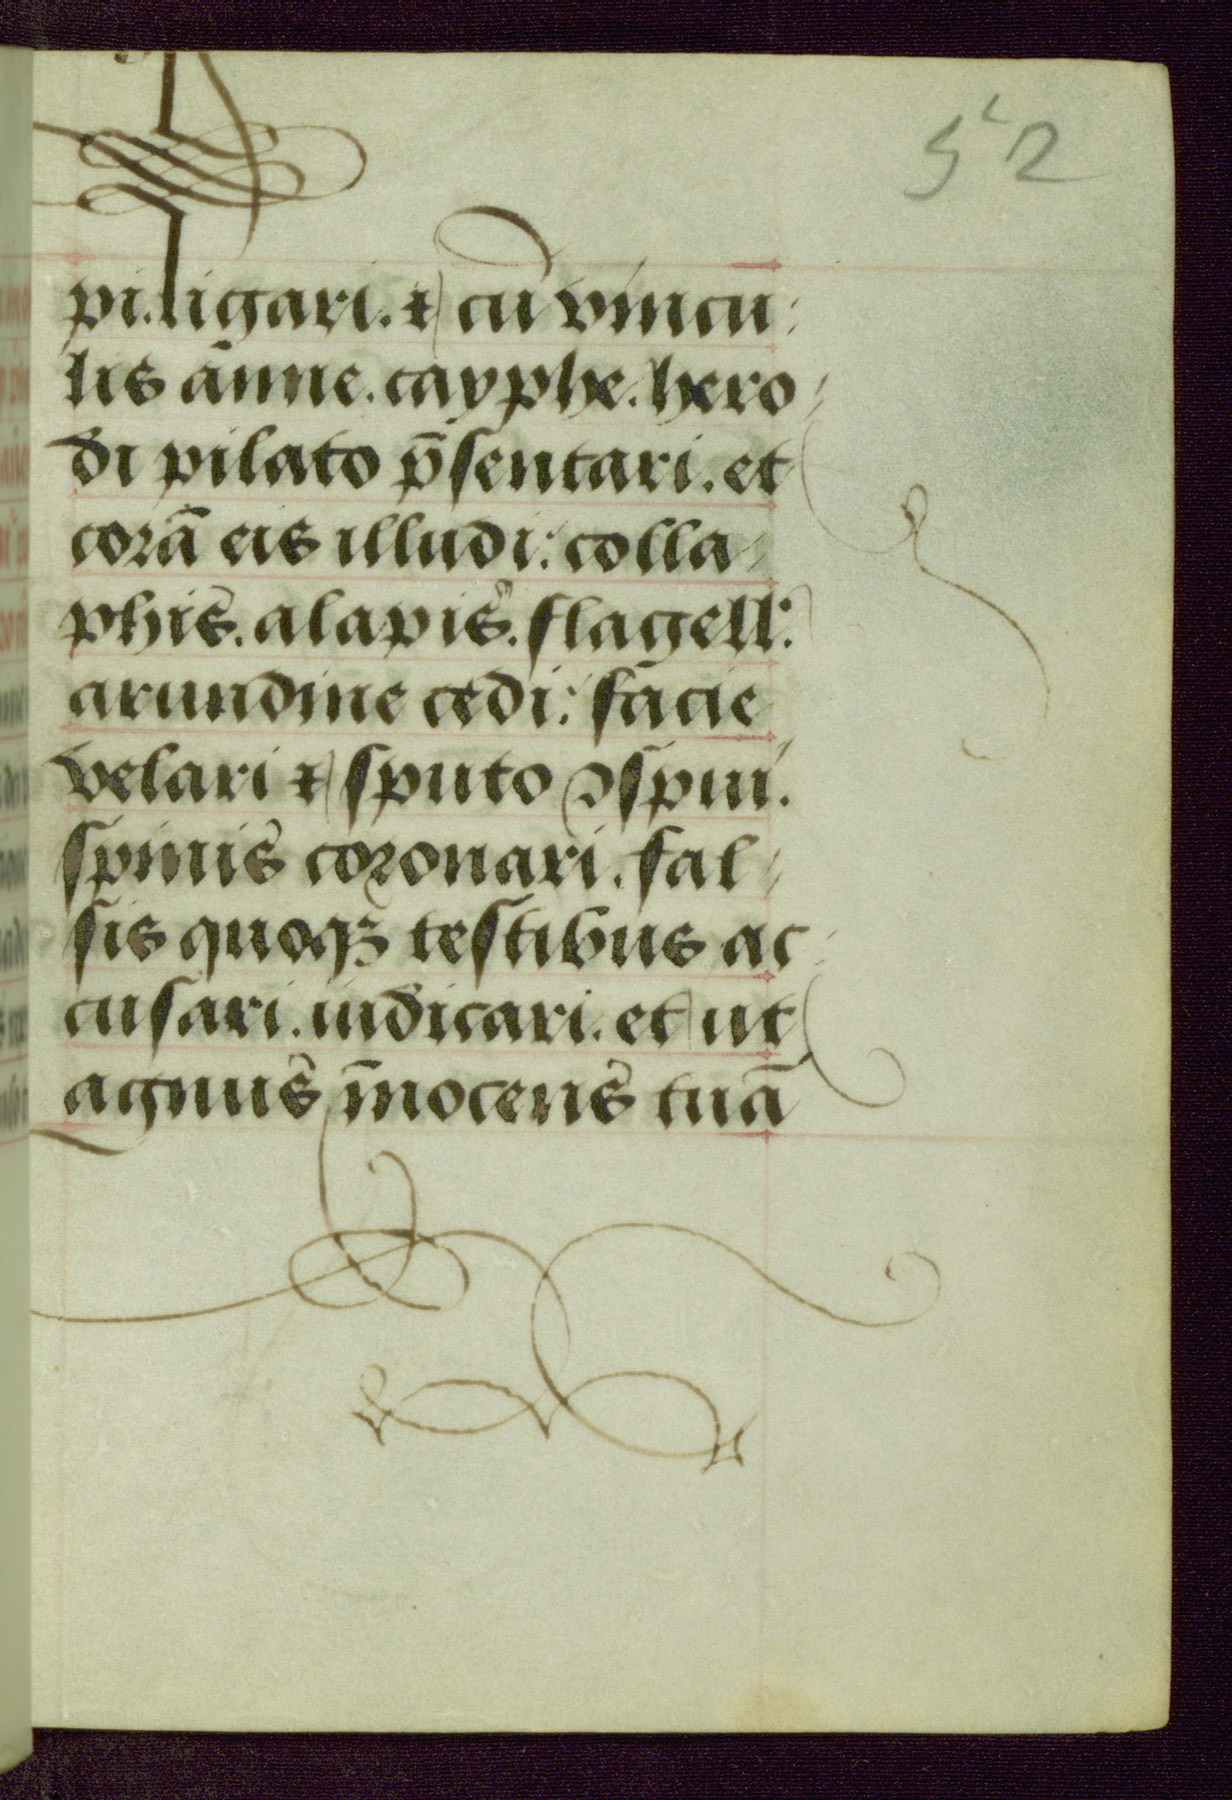 52
pi. ligari. ⁊ cū vincu
lis anne. cayphe. hero
di pilato p̄sentari. et
corā eis illudi: colla
phis. alapis. flagell:
arundine cedi: facie
velari ⁊ sputo ↄspui.
spinis coronari. fal
sis quoqꝫ testibus ac
cusari. iudicari. et ut
agnus īnocens tuā